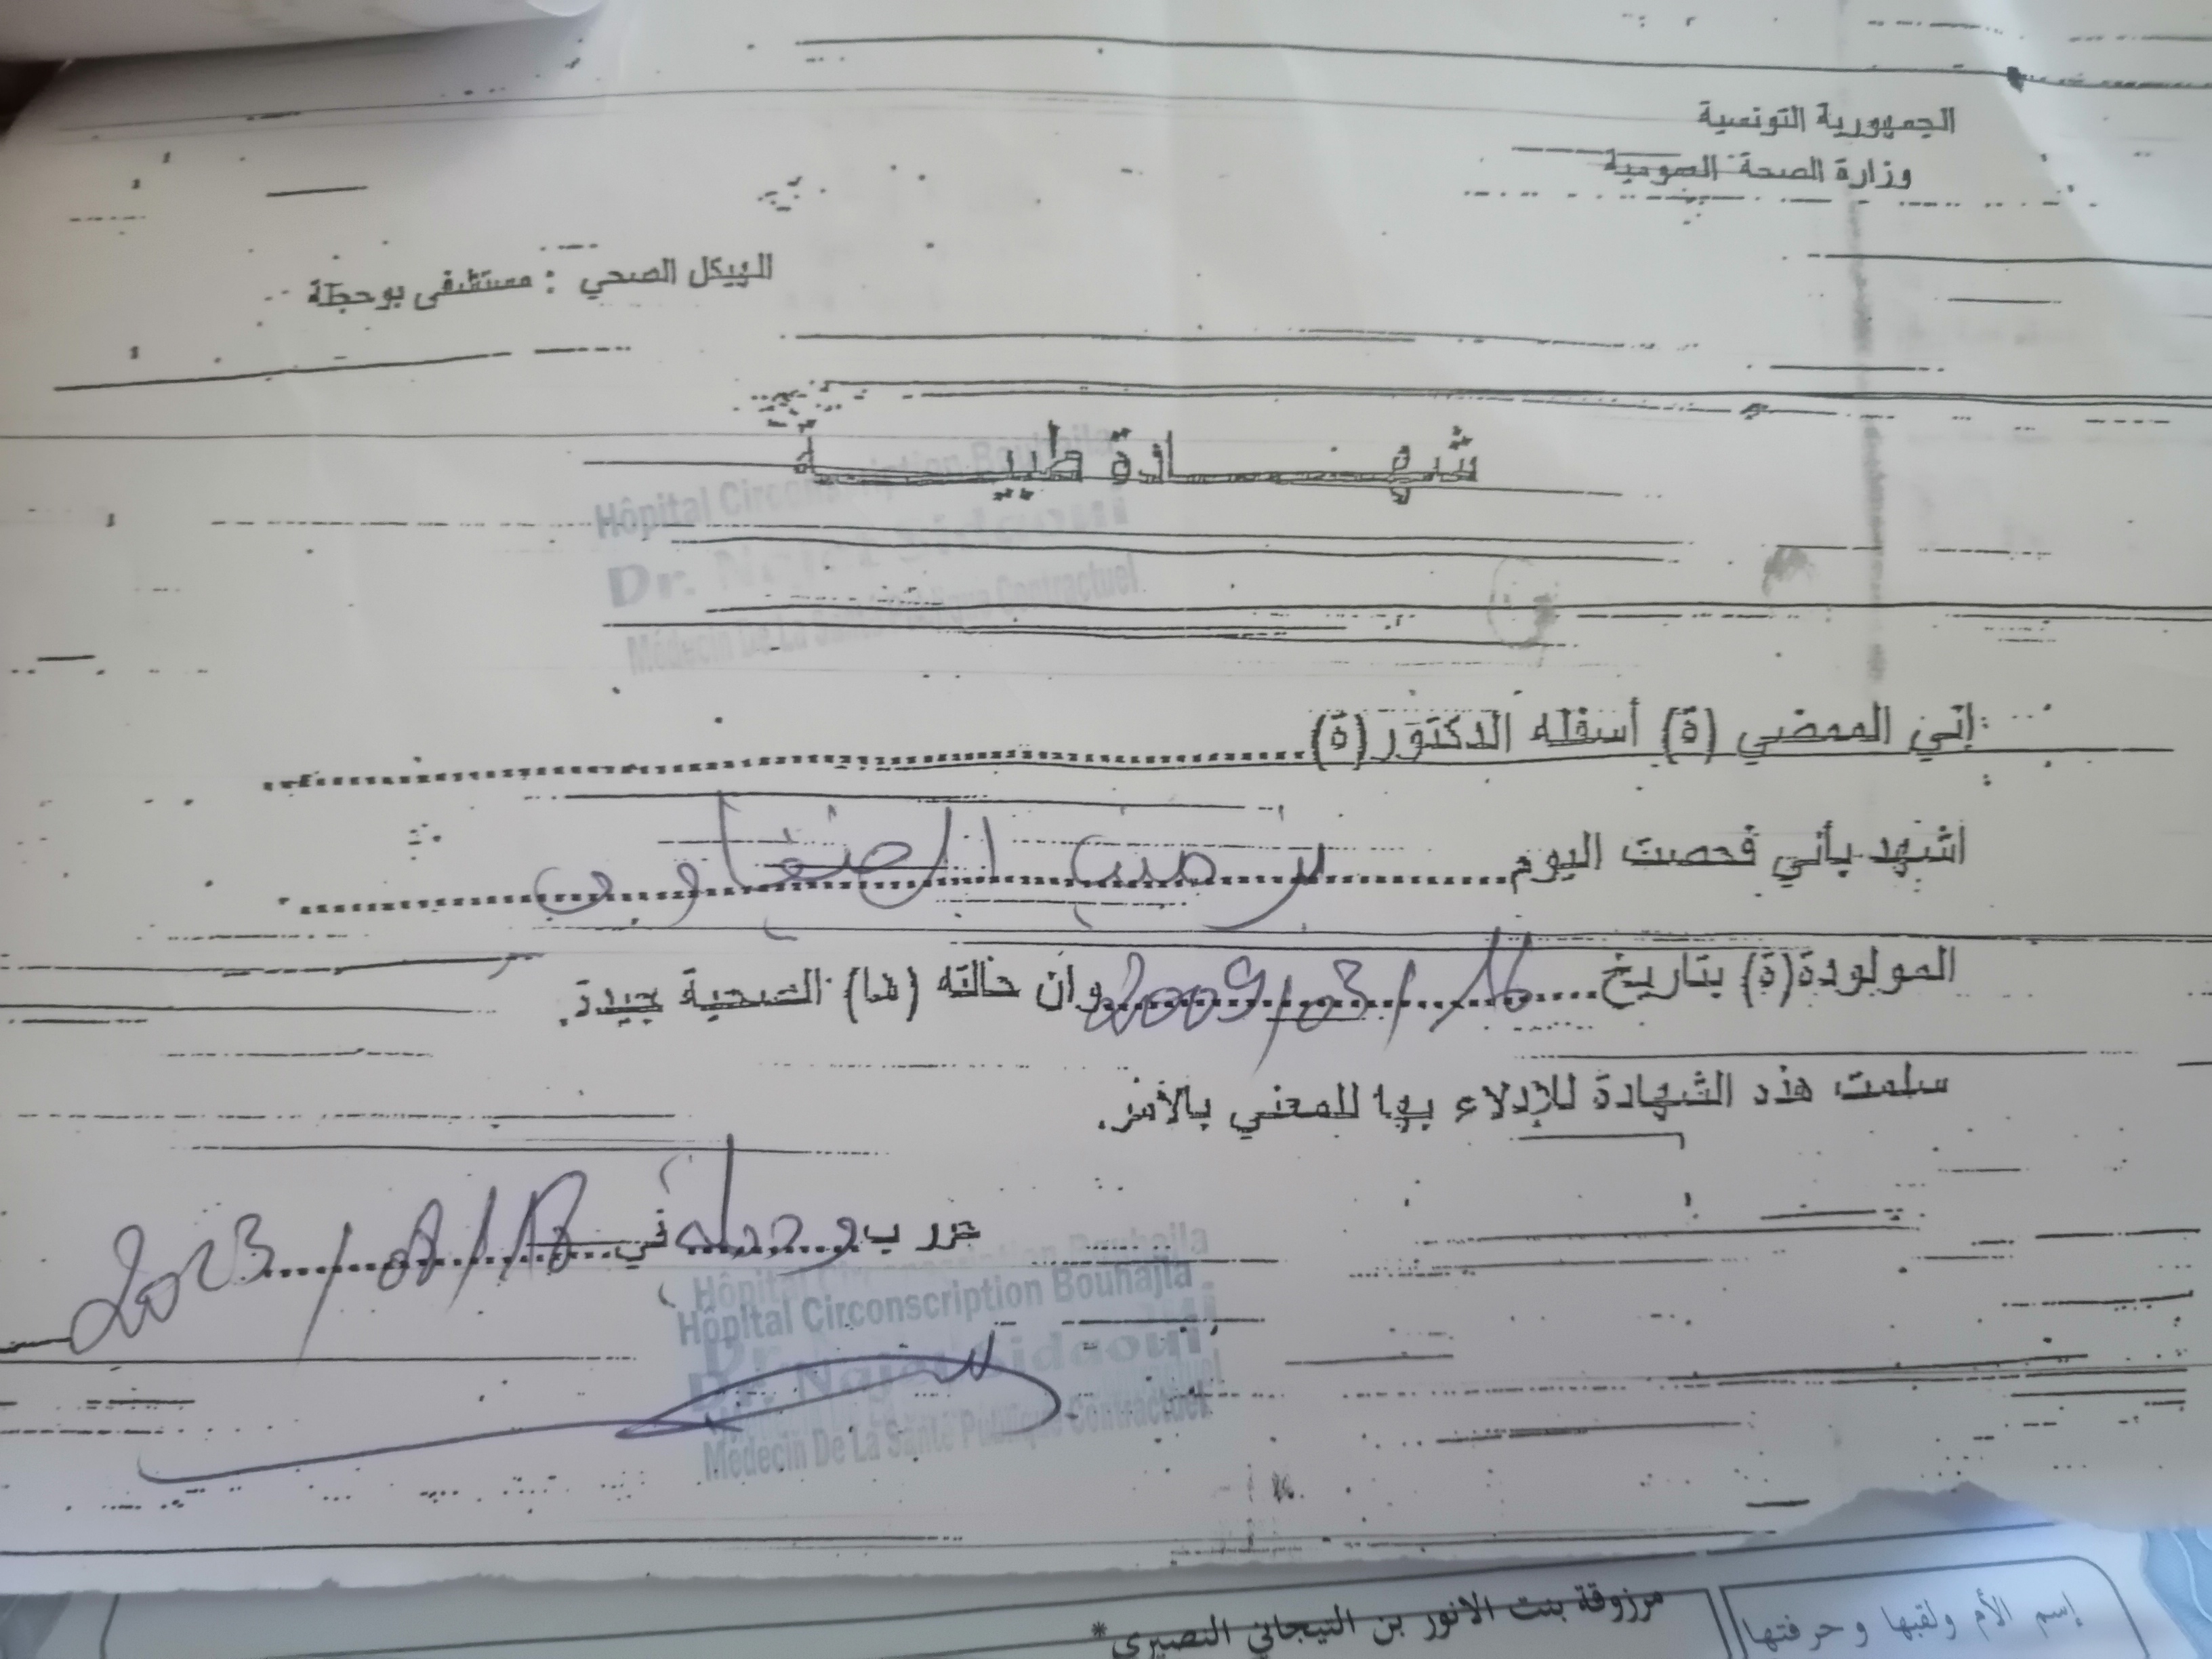 الجمهورية التونسية
وزارة الصحة العمومية
الهيكل الصحي : مستشفى بوحجلة
شهـــــادة طبيـــــة
Hôpital Circonscription Bouhajla
Dr.
Médecin De La Santé Publique Contractuel
إني الممضي (ة) أسفله الدكتور(ة)
اشهد بأني فحصت اليوم
المولودة(ة) بتاريخ 16/03/2009 وان حالته (ها) الصحية جيدة.
سلمت هذه الشهادة للإدلاء بها للمعني بالأمر.
حرر ب وحجلة في 18/08/2023
Hôpital Circonscription Bouhajla
Dr. Najeh Sidaoui
Médecin De La Santé Publique Contractuel
إسم الأم ولقبها وحرفتها
مرزوقة بنت الانور بن التيجاني النصيري*